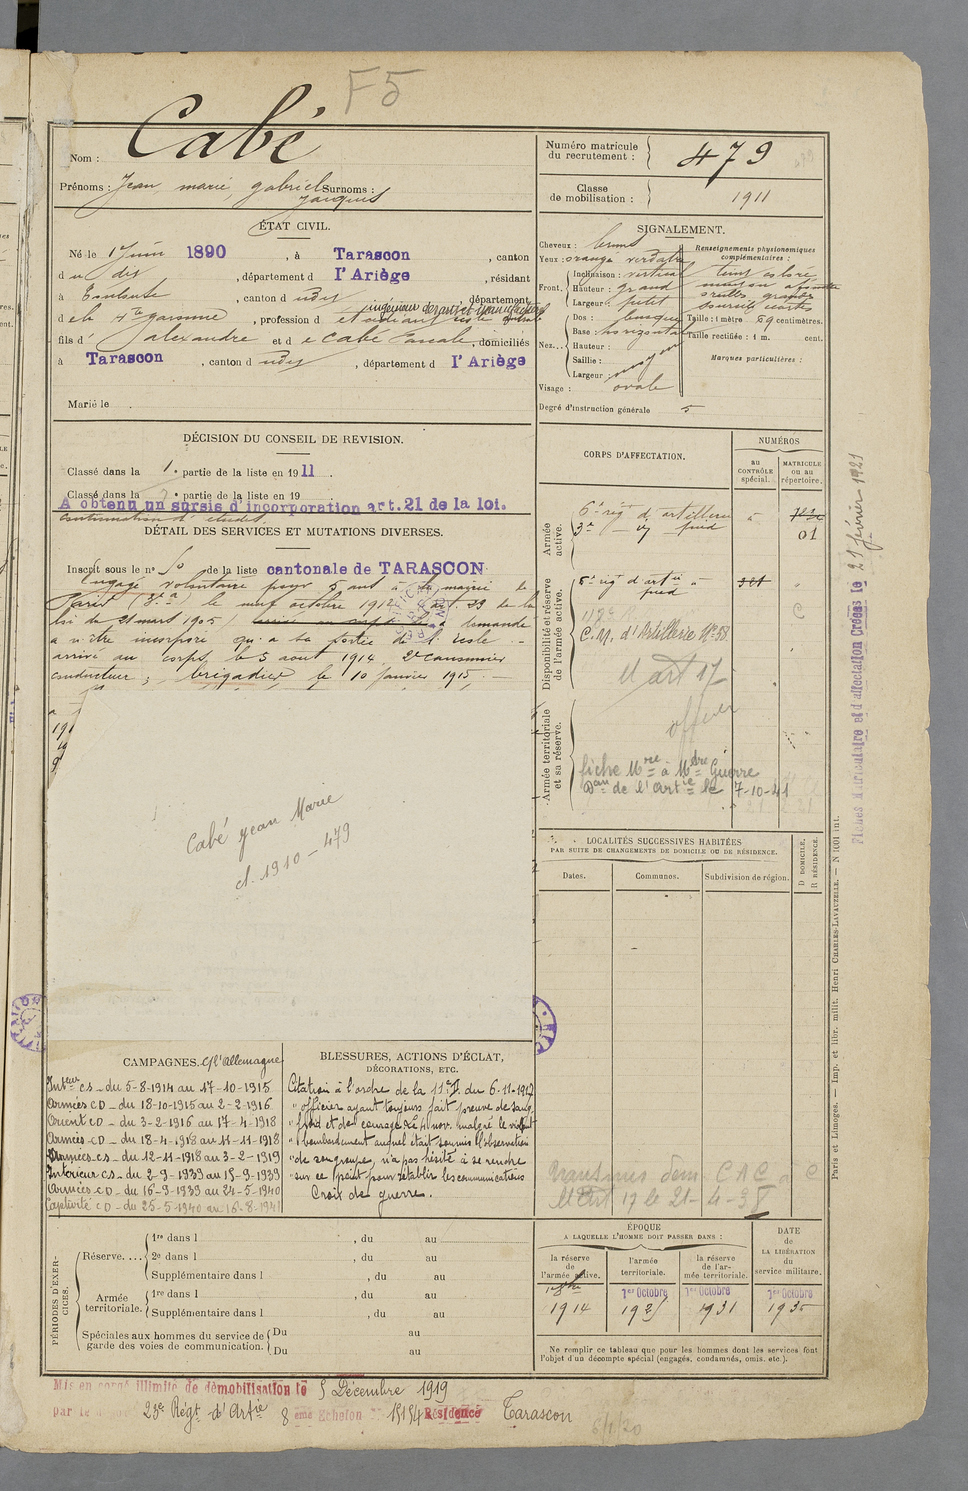 F5
Nom : Cabé
Prénoms : Jean marie, gabriel Surnoms :
Jacques
Numéro matricule du recrutement : 479
Classe de mobilisation : 1911
ÉTAT CIVIL.
Né le 1 Juin 1890, à Tarascon, canton
du dit, département d l'Ariège, résidant
à Toulouse, canton d udit, département
d e la Hte garonne, profession d étudiant
ingénieur des arts et manufactures
fils d' alexandre et d e Cabé, domiciliés
à Tarascon, canton d udit, département d l'Ariège
Marié le
SIGNALEMENT.
Cheveux : bruns
Yeux : orangé verdâtre
Front. Inclinaison : vertical
Hauteur : grand
Largeur : petit
Nez... Dos : busqué
Base : horizontale
Hauteur :
Saillie :
Largeur : moyen
Visage : ovale
Renseignements physionomiques complémentaires :
teint coloré
Taille : 1 mètre 69 centimètres.
Taille rectifiée : 1 m. cent.
Marques particulières :
Degré d'instruction générale 5
DÉCISION DU CONSEIL DE REVISION.
Classé dans la 1e partie de la liste en 1911
Classé dans la e partie de la liste en 19
A obtenu un sursis d'incorporation art. 21 de la loi.
continuation d'études.
DÉTAIL DES SERVICES ET MUTATIONS DIVERSES.
Inscrit sous le n° 50 de la liste cantonale de TARASCON
Engagé volontaire pour 5 ans à la mairie de
Paris (3e a) le neuf octobre 1912 art. 23 de la
loi de 21 mars 1905
a demandé
a n'être incorporé qu'à sa sortie de l'école
arrivé au corps le 5 aout 1914 2e canonnier
conducteur ; brigadier le 10 janvier 1915
Cabé Jean Marie
cl. 1910 - 479
CORPS D'AFFECTATION.
NUMÉROS
au CONTRÔLE spécial.
MATRICULE ou au répertoire.
Armée active.
6e rég d'artillerie à
3e — à pied
01
Disponibilité et réserve de l'armée active.
6e rég d'artie à pied
C.M. d'Artillerie N° 58
M art 17
C
Armée territoriale et sa réserve.
officier
fiche Mre à Mtre Guerre
Don de l'Artie le 7-10-41
LOCALITÉS SUCCESSIVES HABITÉES
PAR SUITE DE CHANGEMENTS DE DOMICILE OU DE RÉSIDENCE.
Dates.
Communes.
Subdivision de région.
D DOMICILE.
R RÉSIDENCE.
Transmis dem. CAC à C
M Art 17 le 21-4-3
CAMPAGNES. Ctre l'Allemagne
Intérr CS - du 5-8-1914 au 17-10-1915
Armées CD - du 18-10-1915 au 2-2-1916
Orient CD - du 3-2-1916 au 17-4-1918
Armées CD - du 18-4-1918 au 11-11-1918
Armées CS - du 12-11-1918 au 3-2-1919
Intérieur CS - du 2-9-1939 au 15-9-1939
Armées CD - du 16-9-1939 au 24-5-1940
Captivité CD - du 25-5-1940 au 16-8-1941
BLESSURES, ACTIONS D'ÉCLAT,
DÉCORATIONS, ETC.
Citation à l'ordre de la 11e D. du 6-11-1917
" officier ayant toujours fait preuve de sang
" froid et de courage. Le 4 nov. malgré le violent
" bombardement auquel était soumis l'observatoire
" de son groupe, n'a pas hésité à se rendre
" sur ce point pour rétablir les communications
Croix de guerre.
PÉRIODES D'EXERCICES.
Réserve.... 1re dans l , du au
2e dans l , du au
Supplémentaire dans l , du au
Armée territoriale. 1re dans l , du au
Supplémentaire dans l , du au
Spéciales aux hommes du service de garde des voies de communication. Du au
Du au
ÉPOQUE
A LAQUELLE L'HOMME DOIT PASSER DANS :
la réserve de l'armée active.
l'armée territoriale.
la réserve de l'armée territoriale.
DATE de LA LIBÉRATION du service militaire.
1914
1er Octobre 192
1er Octobre 1931
1er Octobre 193
Ne remplir ce tableau que pour les hommes dont les services font
l'objet d'un décompte spécial (engagés, condamnés, omis, etc.).
Mis en congé illimité de démobilisation le 5 Décembre 1919
par le 23e Régt d'Artie 8eme Echelon 15154 Résidence Tarascon
6/1/20
Paris et Limoges. — Imp. et libr. milit. Henri CHARLES-LAVAUZELLE. — N° 1001 int.
Fiches matriculaire et d'affectation Créées le 21 février 1921